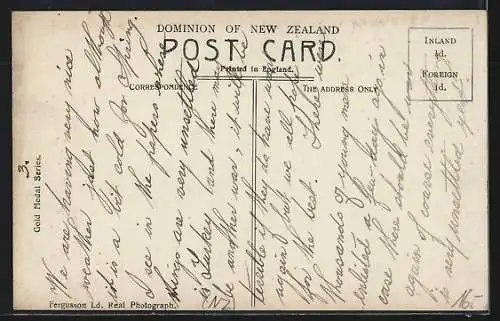 DOMINION OF NEW ZEALAND
POST CARD.
Printed in England.
CORRESPONDENCE
THE ADDRESS ONLY
INLAND
½d.
FOREIGN
1d.
Gold Medal Series.
3.
We are having very nice
weather just now although
it is a bit cold for Spring.
I see in the papers where
things are very unsettled
in Turkey and there may
be another war, it will be
terrible if they do have war
again but we all hope
for the best. There were
thousands of young men
enlisted a few days ago in
case there should be war
again of coarse everything
is very unsettled yet.
Fergusson Ld. Real Photograph.
NZ